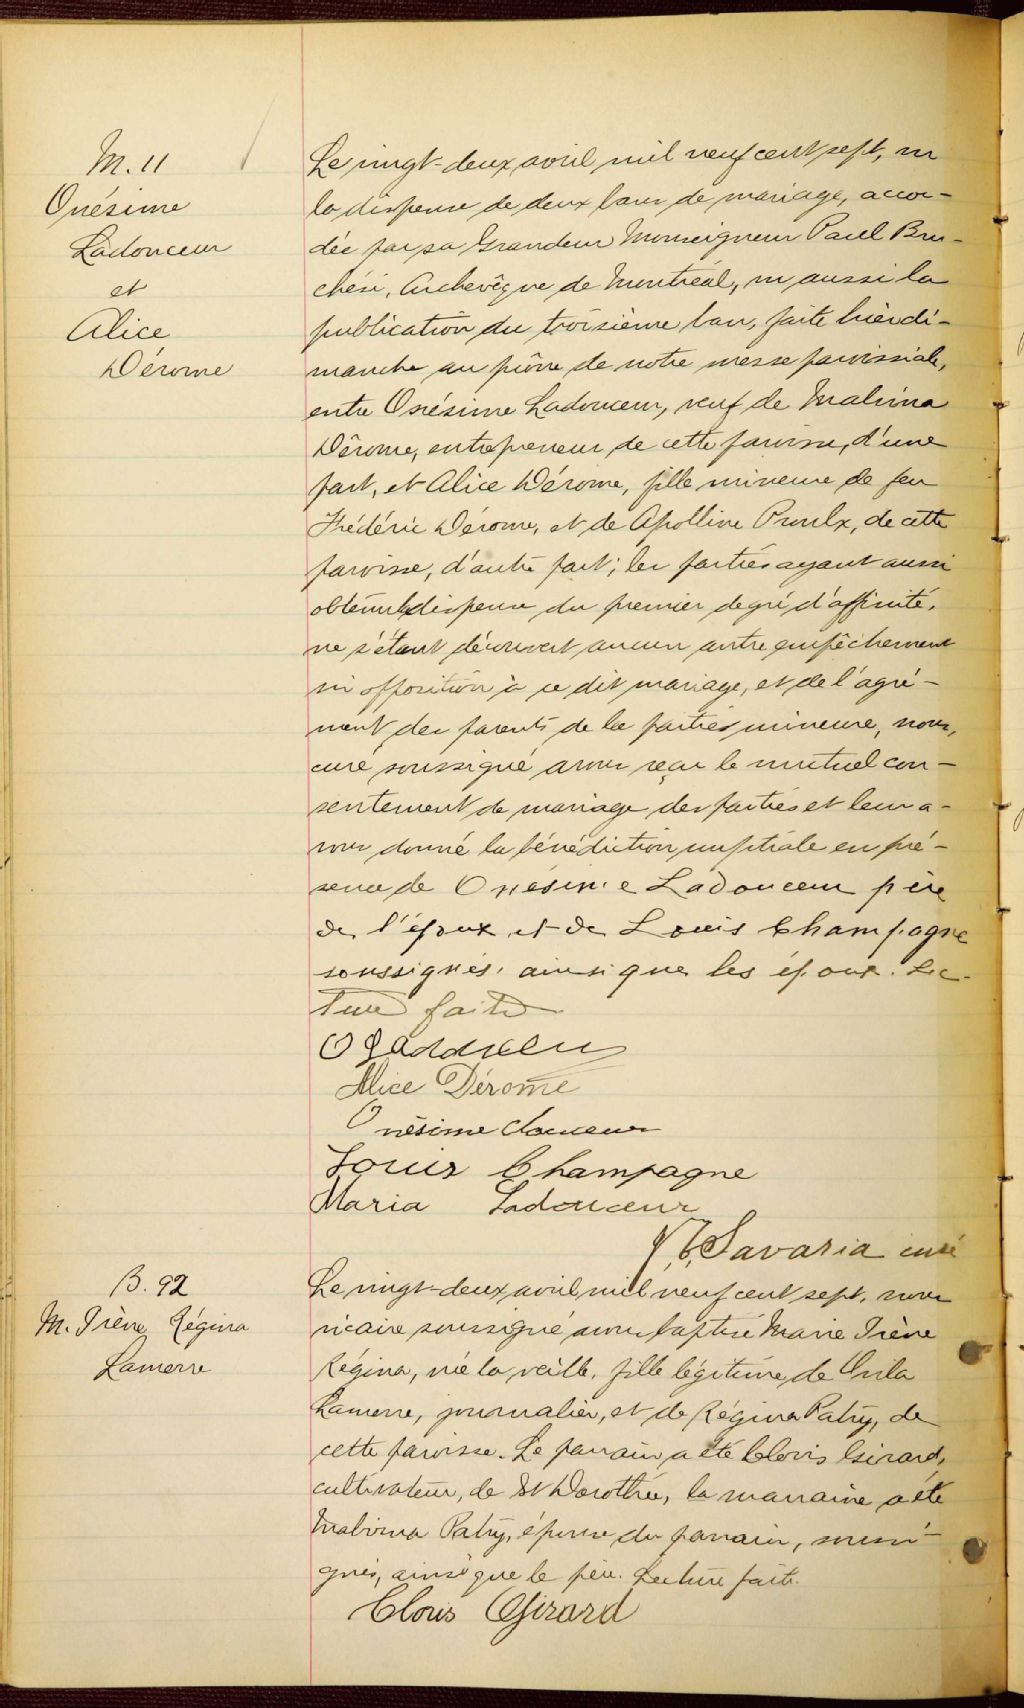 M. 11
Onésime
Ladouceur
et
Alice
Dérome
Le vingt-deux avril mil neuf cent sept, vu
la dispense de deux bans de mariage, accor-
dée par sa Grandeur Monseigneur Paul Bru-
chési, Archevêque de Montréal, vu aussi la
publication du troisième ban, faite hier di-
manche au prône de notre messe paroissiale,
entre Onésime Ladouceur, veuf de Malvina
Dérome, entrepreneur de cette paroisse, d'une
part, et Alice Dérome, fille mineure de feu
Frédéric Dérome, et de Apolline Proulx, de cette
paroisse, d'autre part; les parties ayant aussi
obtenu dispense du premier degré d'affinité,
ne s'étant découvert aucun autre empêchement
ni opposition à ce dit mariage, et de l'agré-
ment des parents de la partie mineure, nous,
curé soussigné avons reçu le mutuel con-
sentement de mariage des parties et leur a-
vons donné la bénédiction nuptiale en pré-
sence de Onésime Ladouceur père
de l'époux et de Louis Champagne
soussignés, ainsi que les époux. Lec-
ture faite
O Ladouceur
Alice Dérome
Onésime douceur
Louis Champagne
Maria Ladouceur
Savaria curé
B. 92
M. Irène Régina
Lamerre
Le vingt-deux avril mil neuf cent sept, nous
vicaire soussigné avons baptisé Marie Irène
Régina, née la veille, fille légitime de Orila
Lamerre, journalier, et de Régina Patry, de
cette paroisse. Le parrain a été Clovis Girard,
cultivateur, de St Dorothée, la marraine a été
Malvina Patry, épouse du parrain, soussi-
gnés, ainsi que le père. Lecture faite.
Clovis Girard